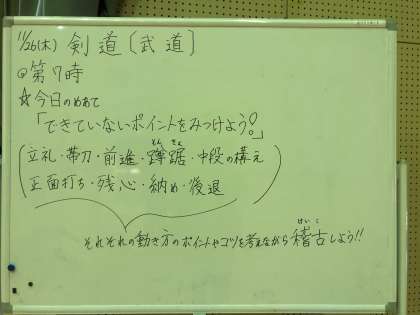 11/26(木) 剣道〔武道〕
◎第7時
☆今日のめあて
「できていないポイントをみつけよう!。」
(立礼・帯刀・前進・蹲踞・中段の構え
そん きょ
正面打ち・残心・納め・後退)
それぞれの動き方のポイントやコツを考えながら稽古しよう!!
けいこ